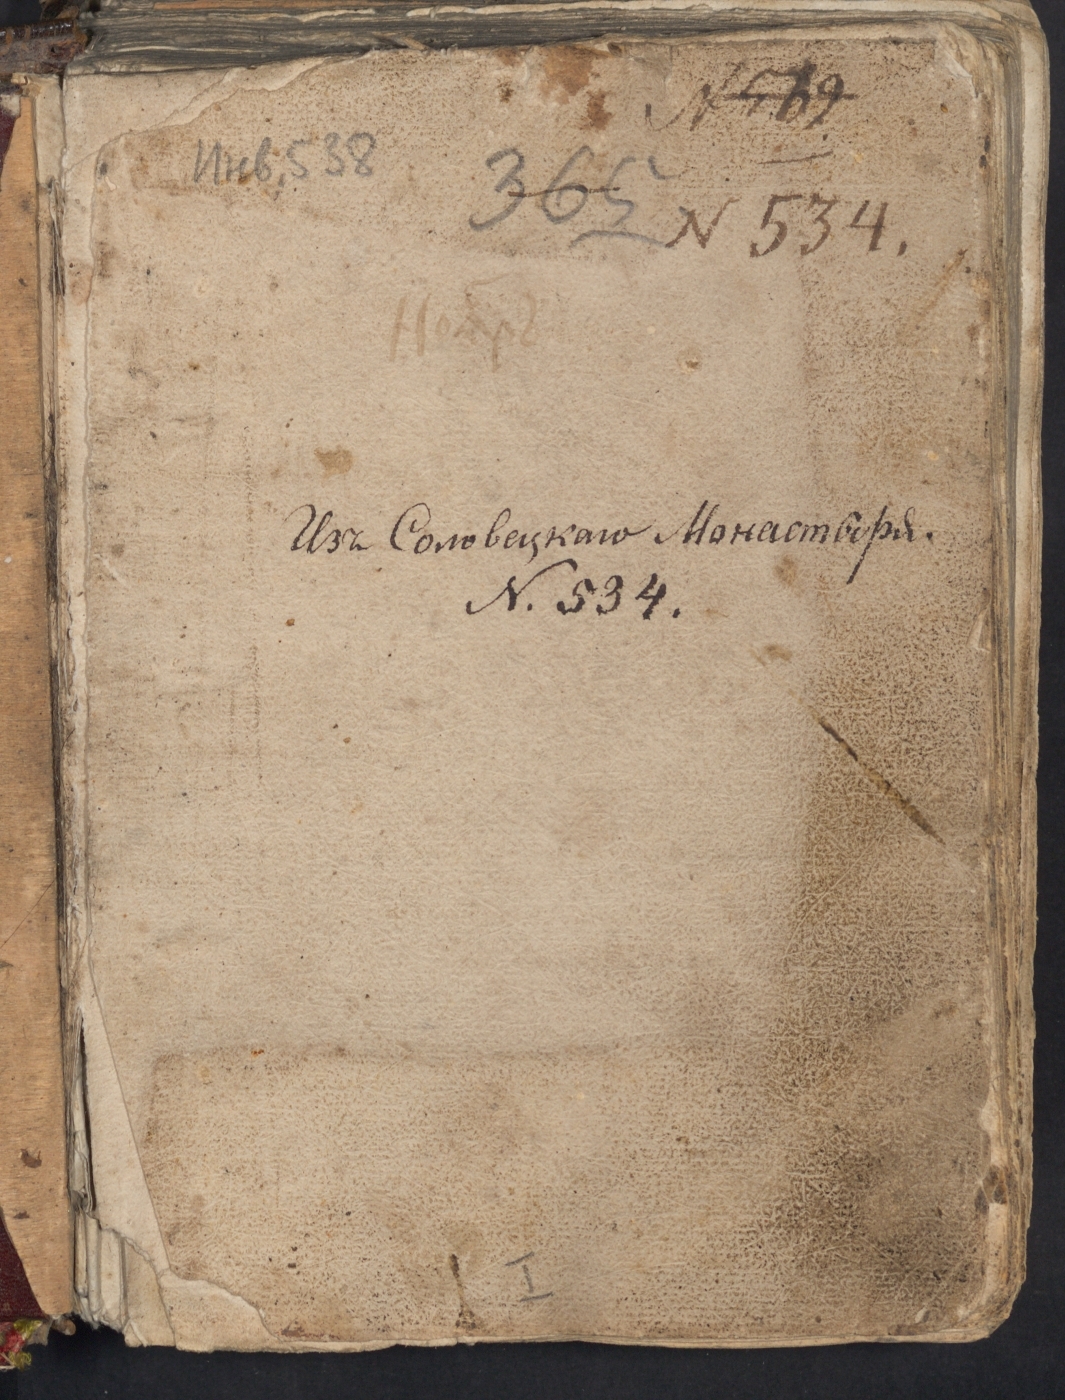 N 569
Инв. 538
365
N 534.
Изъ Соловецкаго Монастыря.
N. 534.
I